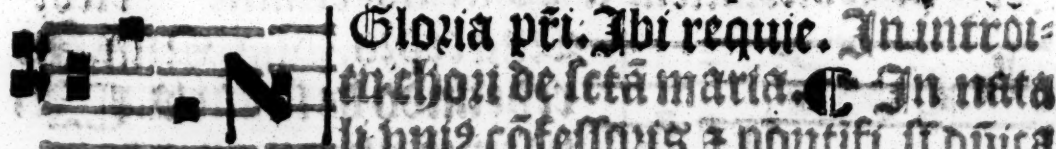 Gloria pr̃i. Ibi requie. In introi-
tu chori de sctã maria. ¶ In nata
li huiꝰ cõfessoris ⁊ põtifi. si dñica